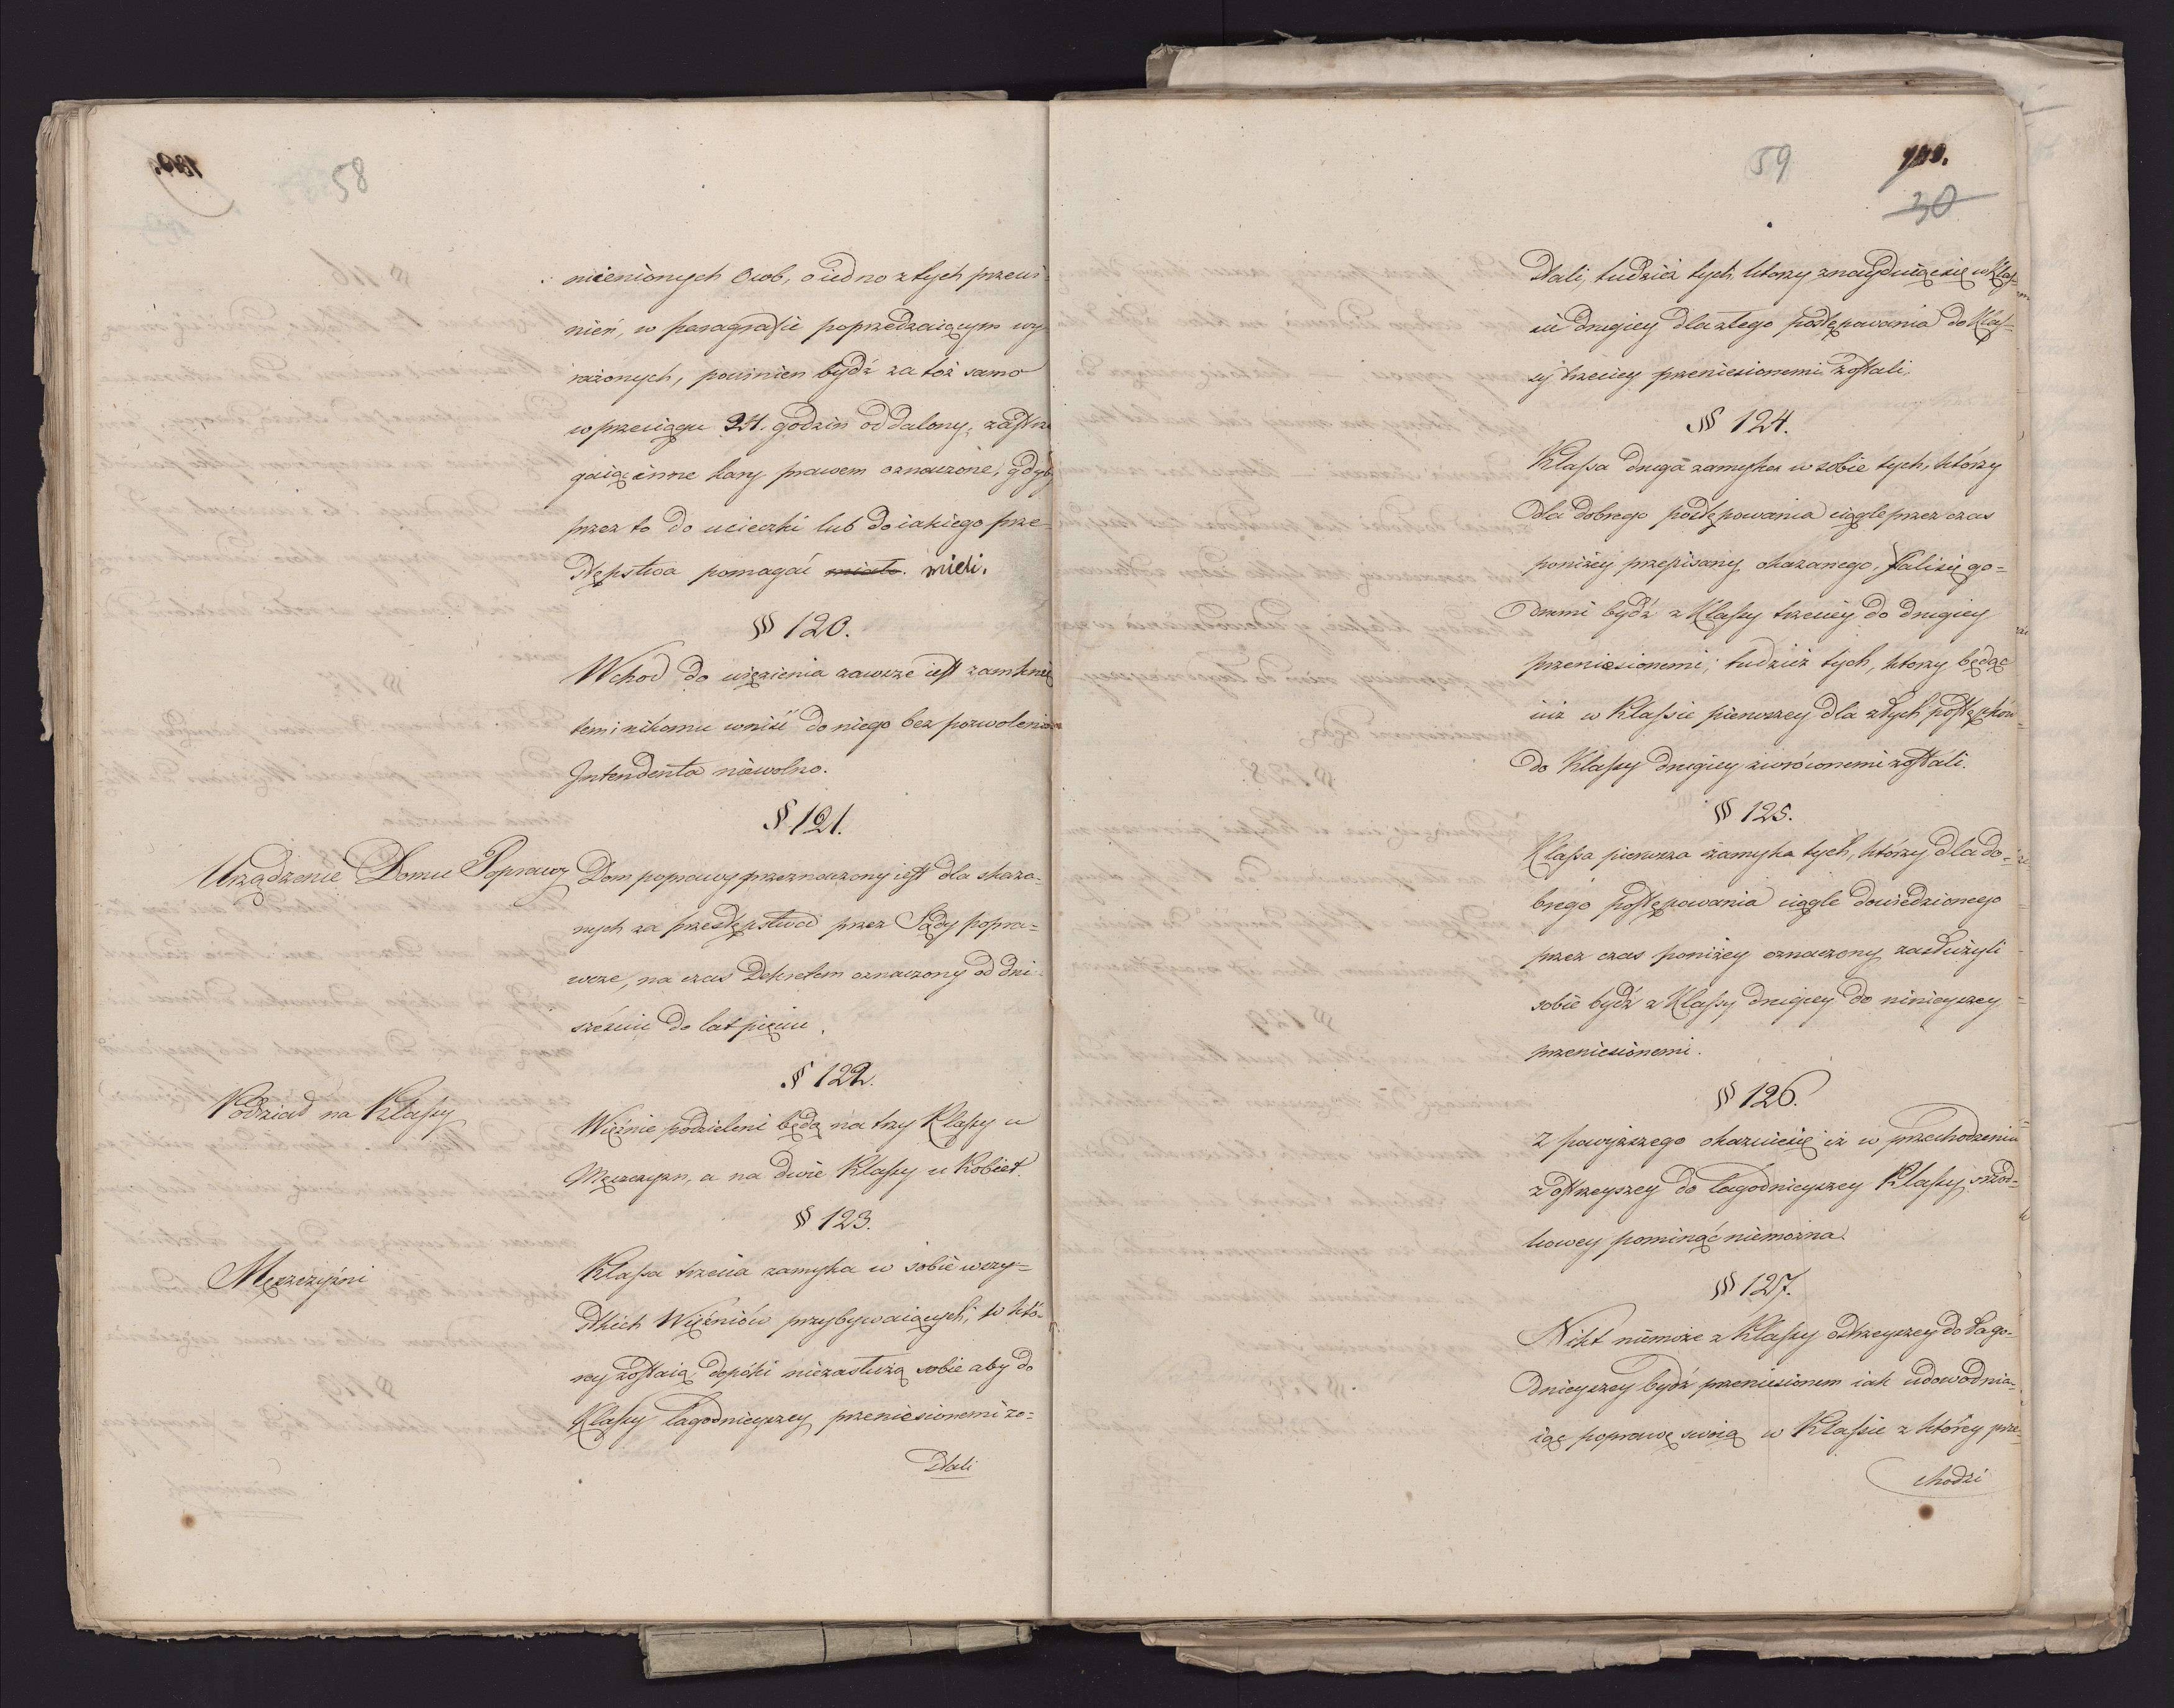 58
mienionych Osob, o iedno z tych przewi=
nień, w paragrafie poprzedzaiącym wy=
rażonych, powinien bydź za toż samo
w przeciągu 24. godzin oddalony, zastrze
gaiąc inne kary prawem oznaczone, gdyby
przez to do ucieczki lub do iakiego prze=
stępstwa pomagać miało. mieli.
§§ 120.
Wchod do więzienia zawsze iest zamknię
tem i nikomu wniść do niego bez pozwolenia
Intendenta niewolno.
§ 121.
Urządzenie Domu Poprawy
Dom poprawy przeznaczony iest dla skaza=
nych za przestępstwa przez Sądy popra=
wcze, na czas Dekretem oznaczony od dni
sześciu do lat pięciu.
§ 122.
Podział na Klassy
Więźnie podzieleni będą na trzy Klassy u
Męszczyzn, a na dwie Klassy u Kobiet.
§ 123.
Męszczyźni
Klassa trzecia zamyka w sobie wszy=
stkich Więźniów przybywaiących, w któ=
rey zostaią, dopóki niezasłużą sobie aby do
Klassy łagodnieyszey przeniesionemi zo=
stali
59
30
stali, tudzież tych, ktorzy znayduiąc się w Klas=
sie drugiey dla złego postępowania do Klas=
sy trzeciey przeniesionemi zostali.
§§ 124.
Klassa druga zamyka w sobie tych, którzy
dla dobrego postępowania ciągle przez czas
poniżey przepisany okazanego, stali się go=
dnemi bydź z Klassy trzeciey do drugiey
przeniesionemi; tudzież tych, ktorzy będąc
iuż w Klassie pierwszey dla złych postępków
do Klassy drugiey zwróconemi zostali.
§§ 125.
Klassa pierwsza zamyka tych, którzy dla do=
brego postępowania ciągle dowiedzionego
przez czas poniżey oznaczony zasłużyli
sobie bydź z Klassy drugiey do ninieyszey
przeniesionemi.
§ 126.
Z powyższego okazuie się iż w przechodzeniu
z ostrzeyszey do łagodnieyszey Klassy, szrod=
kowey pominąć niemożna.
§§ 127.
Nikt niemoże z Klassy ostrzeyszey do łago=
dnieyszey bydź przeniesionem iak udowodnia=
iąc poprawę swoią w Klassie z którey prze=
chodzi